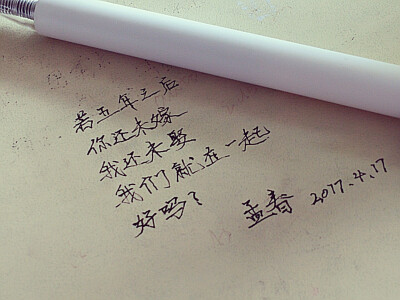 若五年之后
你还未嫁
我还未娶
我们就在一起
好吗?
孟春 2017.4.17